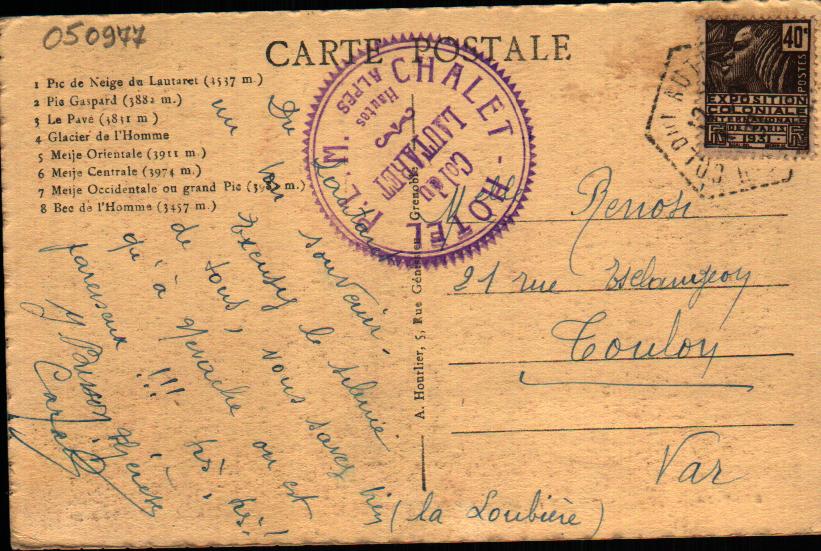 050977
CARTE POSTALE
1 Pic de Neige du Lautaret (3537 m.)
2 Pic Gaspard (3882 m.)
3 Le Pavé (3831 m )
4 Glacier de l'Homme
5 Meije Orientale (3911 m.)
6 Meije Centrale (3974 m.)
7 Meije Occidentale ou grand Pic (39 m.)
8 Bec de l'Homme (3457 m.)
CHALET - HÔTEL P.L.M.
Col du
LAUTARET
Hautes
ALPES
40c
POSTES
EXPOSITION
COLONIALE
INTERNATIONALE
DE PARIS
1931
COL DU LAUTARET
Du Lautaret
un bon souvenir.
Excusez le silence
de tous, vous savez bien
qu'à Névache on est
paresseux !!! très! très!
A. Hourlier, 5, Rue Génissieu, Grenoble
21 rue
Toulon
Var
(la Loubière)